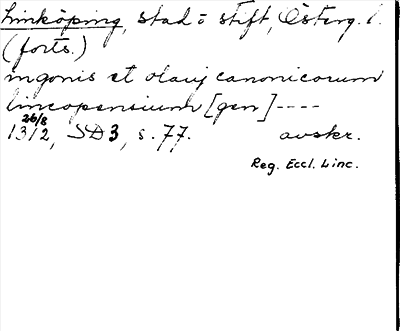 Linköping, stad o stift, Österg. l.
(forts.)
ingonis et olauj canonicorum
lincopensium [gen] ----
26/8
1312, SD3, s. 77. avskr.
Reg. Eccl. Linc.